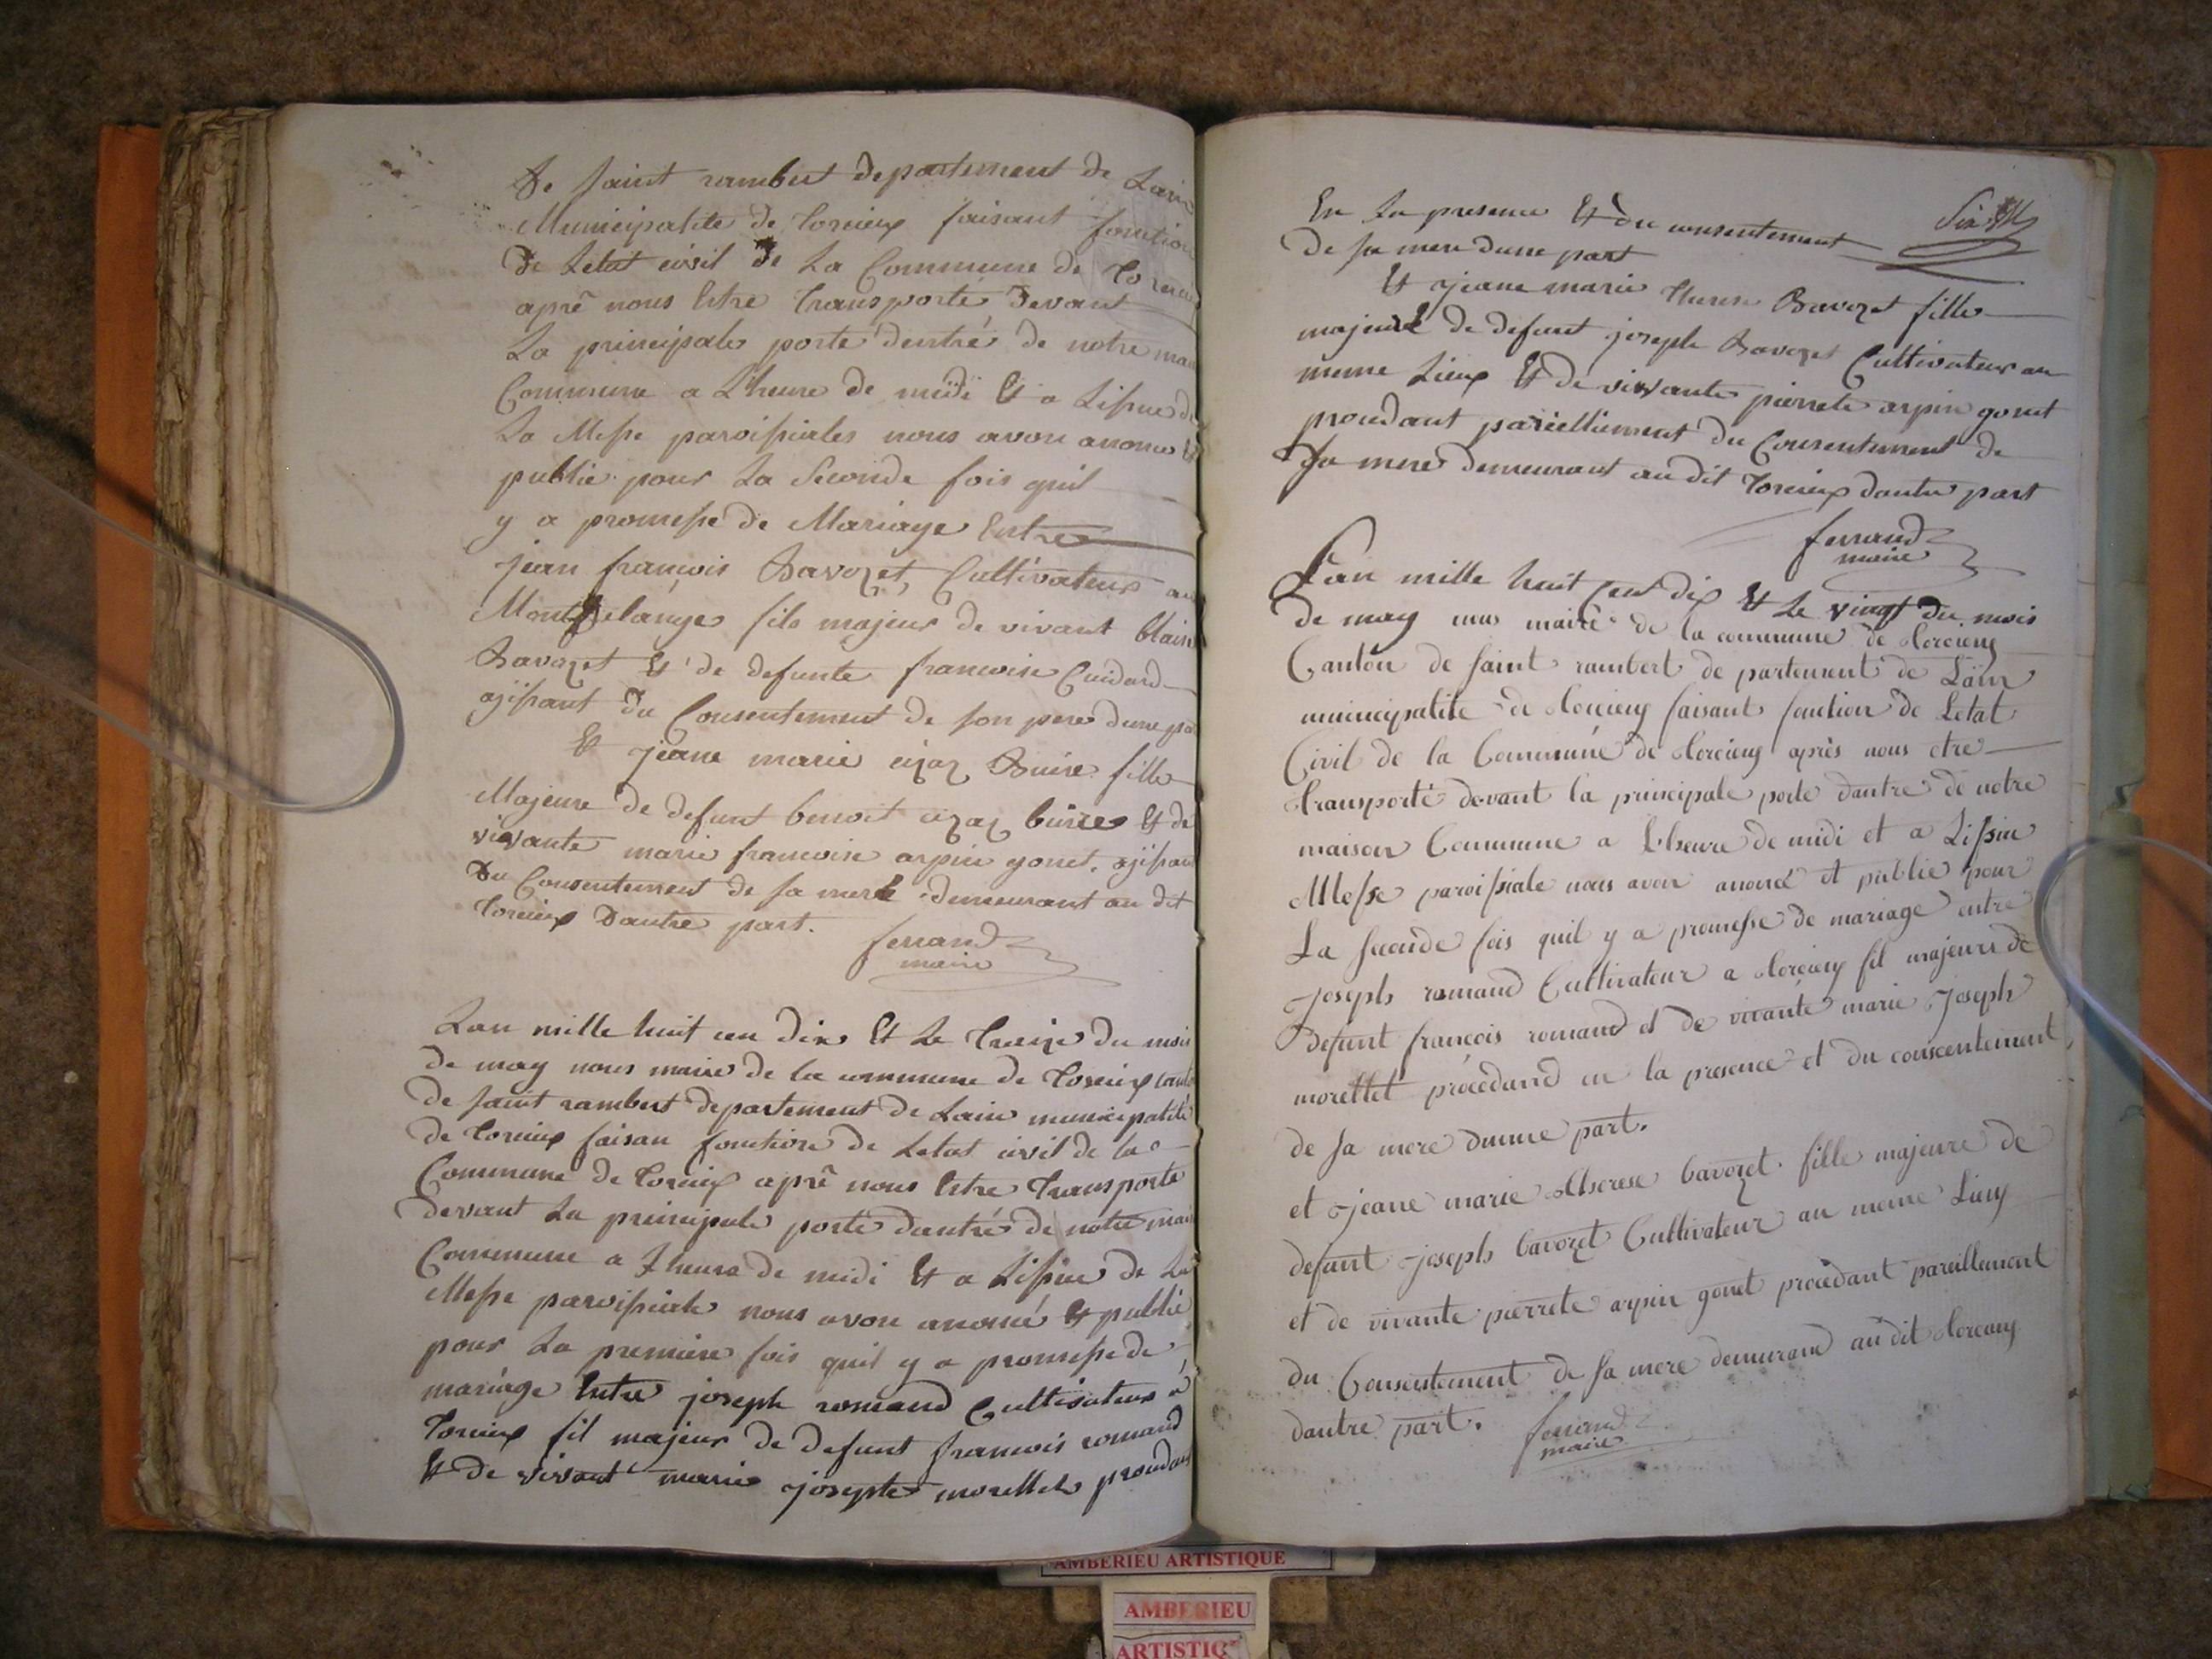 De saint rambert departement de Lain
Municipalite de torcieux faisant fonction
de Letat civil de La Commune de torcieu
aprê nous Estre transporté devant
La principale porte dentré de notre mai
Commune a L'heure de midi Et a Lissue de
La Messe paroissiales nous avon anoncé Et
publie pour La Seconde fois quil
y a promesse de Mariage Entre
jean françois Bavozet, Cultivateur au
Montfelange fils majeur de vivant blain
Bavozet Et de defunte francoise Cuidard
agissant du Consentement de son pere dune pa
Et jeane marie Buire fille
Majeure de defunt benoit buire Et de
vivante marie francoise arpin gonet, agissan
Du Consentement de sa mere demeurant au dit
torcieux Dautre part.
ferrand
maire
Lan mille huit cen dix Et Le treize du mois
de may nous maire de la commune de torcieux canto
de saint rambert departement de Lain municipalité
de torcieux faisan fonctions de Letat civil de la
Commune de torcieux aprê nous Estre transporte
devant La principale porte dentré de notre mais
Commune a Lheure de midi Et a Lissue de La
Messe paroissiale nous avon anoncé Et publié
pour La premiere fois quil y a promesse de
mariage Entre joseph romand Cultivateur a
torcieux fil majeur de defunt francois romand
Et de vivant marie josepte morellet procedant
En La presence Et du consentement
de sa mere dune part
Et jeane marie therese Bavozet fille
majeure de defunt joseph Bavozet Cultivateur au
meme Lieux Et de vivante pierrete arpin gonet
procedant pareilliement du Consentement de
sa mere demeurant au dit torcieux dautre part
ferrand
maire
Lan mille huit cent dix Et Le vingt du mois
de may nous maire de la commune de torcieux
Canton de saint rambert de partement de Lain
municipalite de torcieux faisant fonction de Letat
Civil de la Commune de torcieux après nous etre
transporté devant la principale porte dantre de notre
maison Commune a Lheure de midi et a Lissue
Messe paroissiale nous avon anoncé et publie pour
La seconde fois quil y a promesse de mariage entre
joseph romand Cultivateur a torcieux fil majeure de
defunt françois romand et de vivante marie joseph
morellet procedand en la presence et du consentement
de sa mere dunne part.
et jeane marie therese bavozet fille majeure de
defunt joseph bavozet Cultivateur au meme Lieux
et de vivante pierrete arpin gonet procedant pareillement
du Consentement de sa mere demurand au dit torcieux
dautre part.
ferrand
maire
AMBERIEU ARTISTIQUE
AMBERIEU
ARTISTIQ